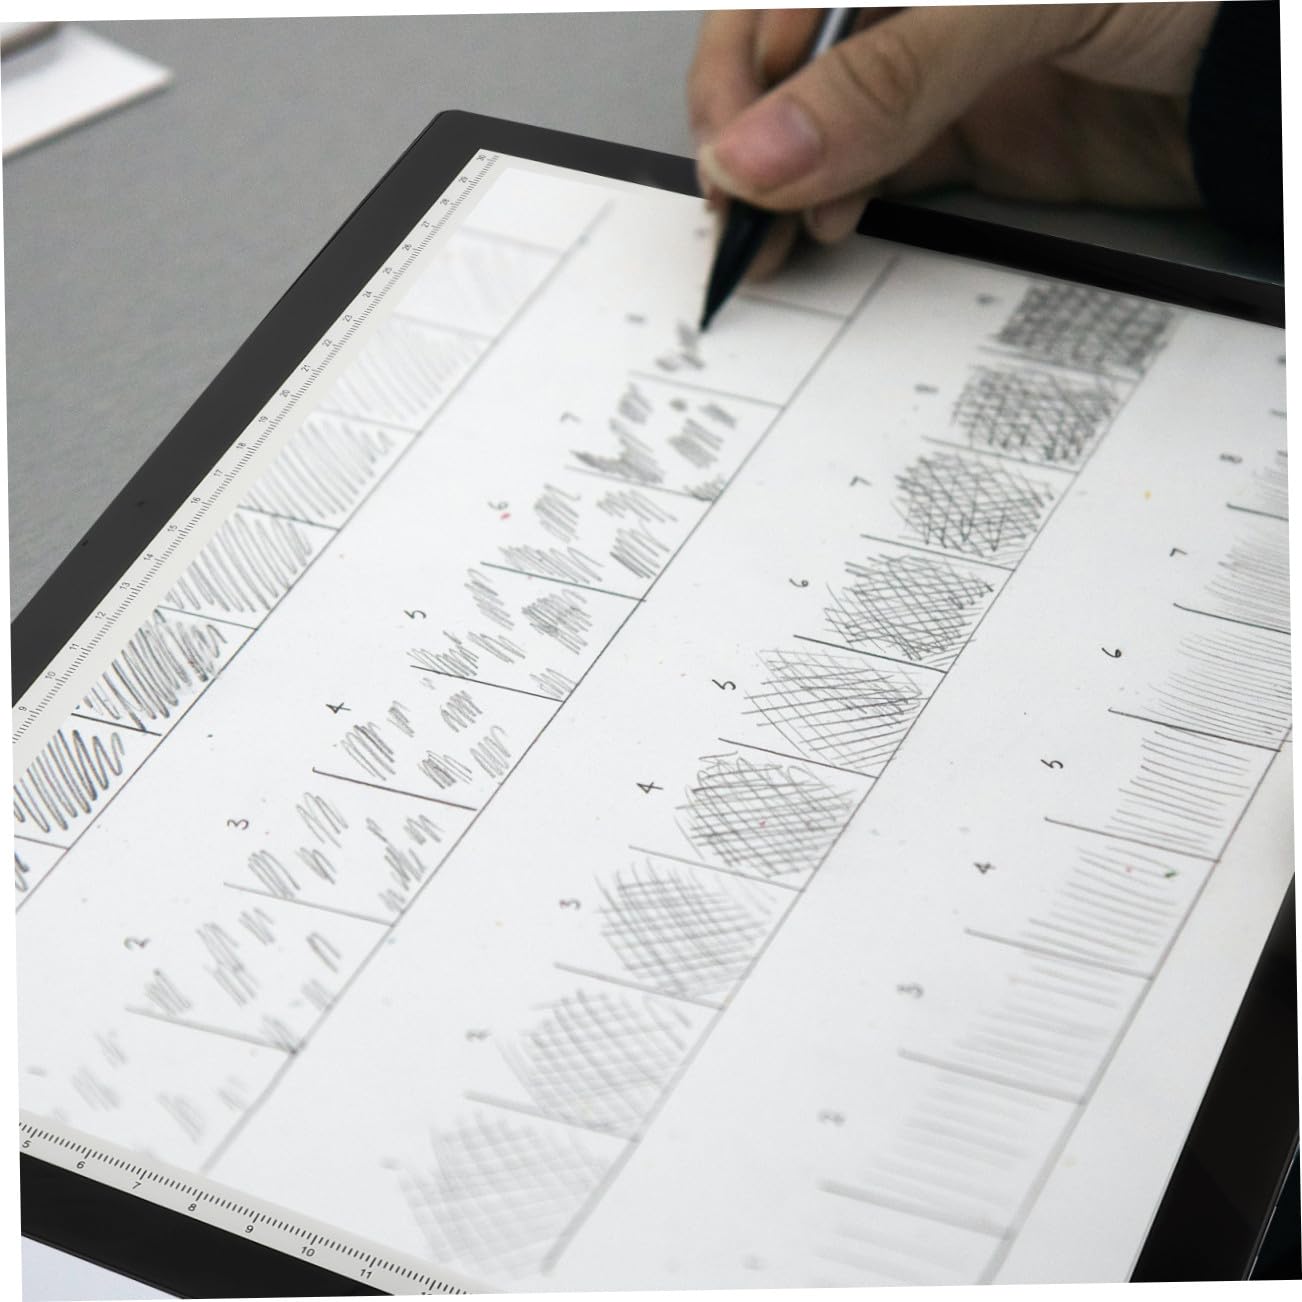 30
29
28
27
26
25
24
23
22
21
20
19
18
17
16
15
14
13
12
11
10
9
7
6
5
4
3
2
9
8
7
6
5
4
3
2
8
7
6
5
4
3
2
5 6 7 8 9 10 11